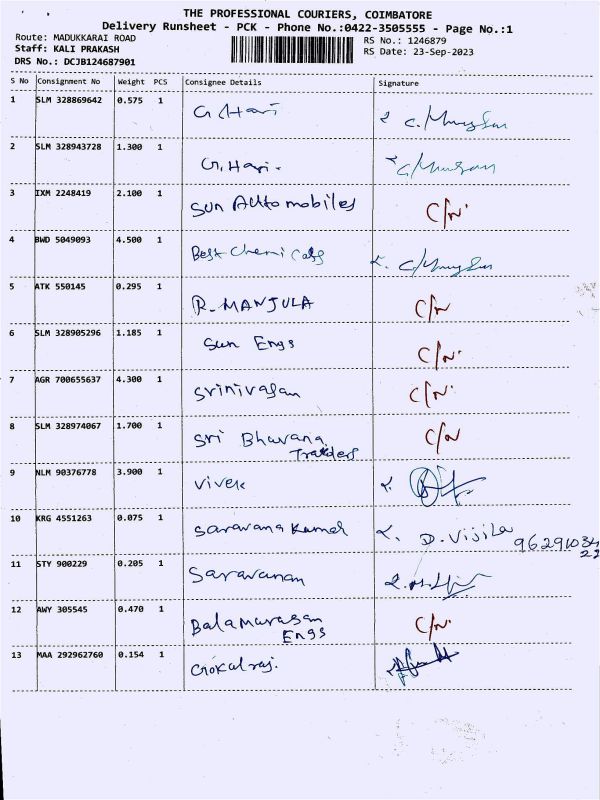 THE PROFESSIONAL COURIERS, COIMBATORE
Delivery Runsheet - PCK - Phone No.:0422-3505555 - Page No.:1
Route: MADUKKARAI ROAD
RS No.: 1246879
Staff: KALI PRAKASH
RS Date: 23-Sep-2023
DRS No.: DCJB124687901
S No Consignment No Weight PCS Consignee Details Signature
1 SLM 328869642 0.575 1 G. Hari
2 SLM 328943728 1.300 1 G. Hari.
3 IXM 2248419 2.100 1 Sun Automobiles C/N.
4 BWD 5049093 4.500 1 Best Chemicals
5 ATK 550145 0.295 1 R. MANJULA C/N
6 SLM 328905296 1.185 1 Sun Engs C/N.
7 AGR 700655637 4.300 1 Srinivasan C/N.
8 SLM 328974067 1.700 1 Sri Bhavana C/N
Traders
9 NLM 90376778 3.900 1 Vivek
10 KRG 4551263 0.075 1 Saravana Kumar D. Vijila
11 STY 900229 0.205 1 Saravanan
12 AWY 305545 0.470 1 Balamurugan C/N.
Engs
13 MAA 292962760 0.154 1 Gokalraj.